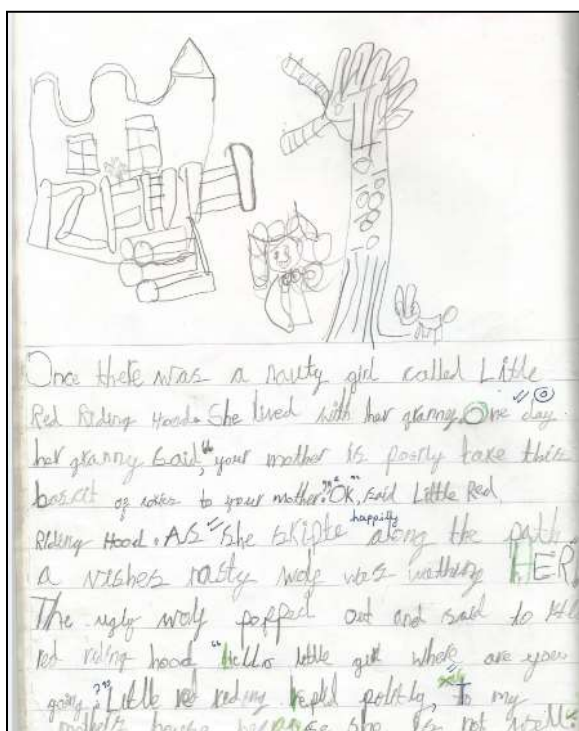 Once there was a nauty girl called Little
Red Riding Hood. She lived with her granny. One day
her granny said, "your mother is poorly take this
of to your mother." "OK," said Little Red
Riding Hood. As she skipte happily along the path
a nasty wolf was HER
The ugly wolf popped out and said to
red riding hood "hello little girl where are you
going?" Little red riding politly, "To my
mothers house she is not well.